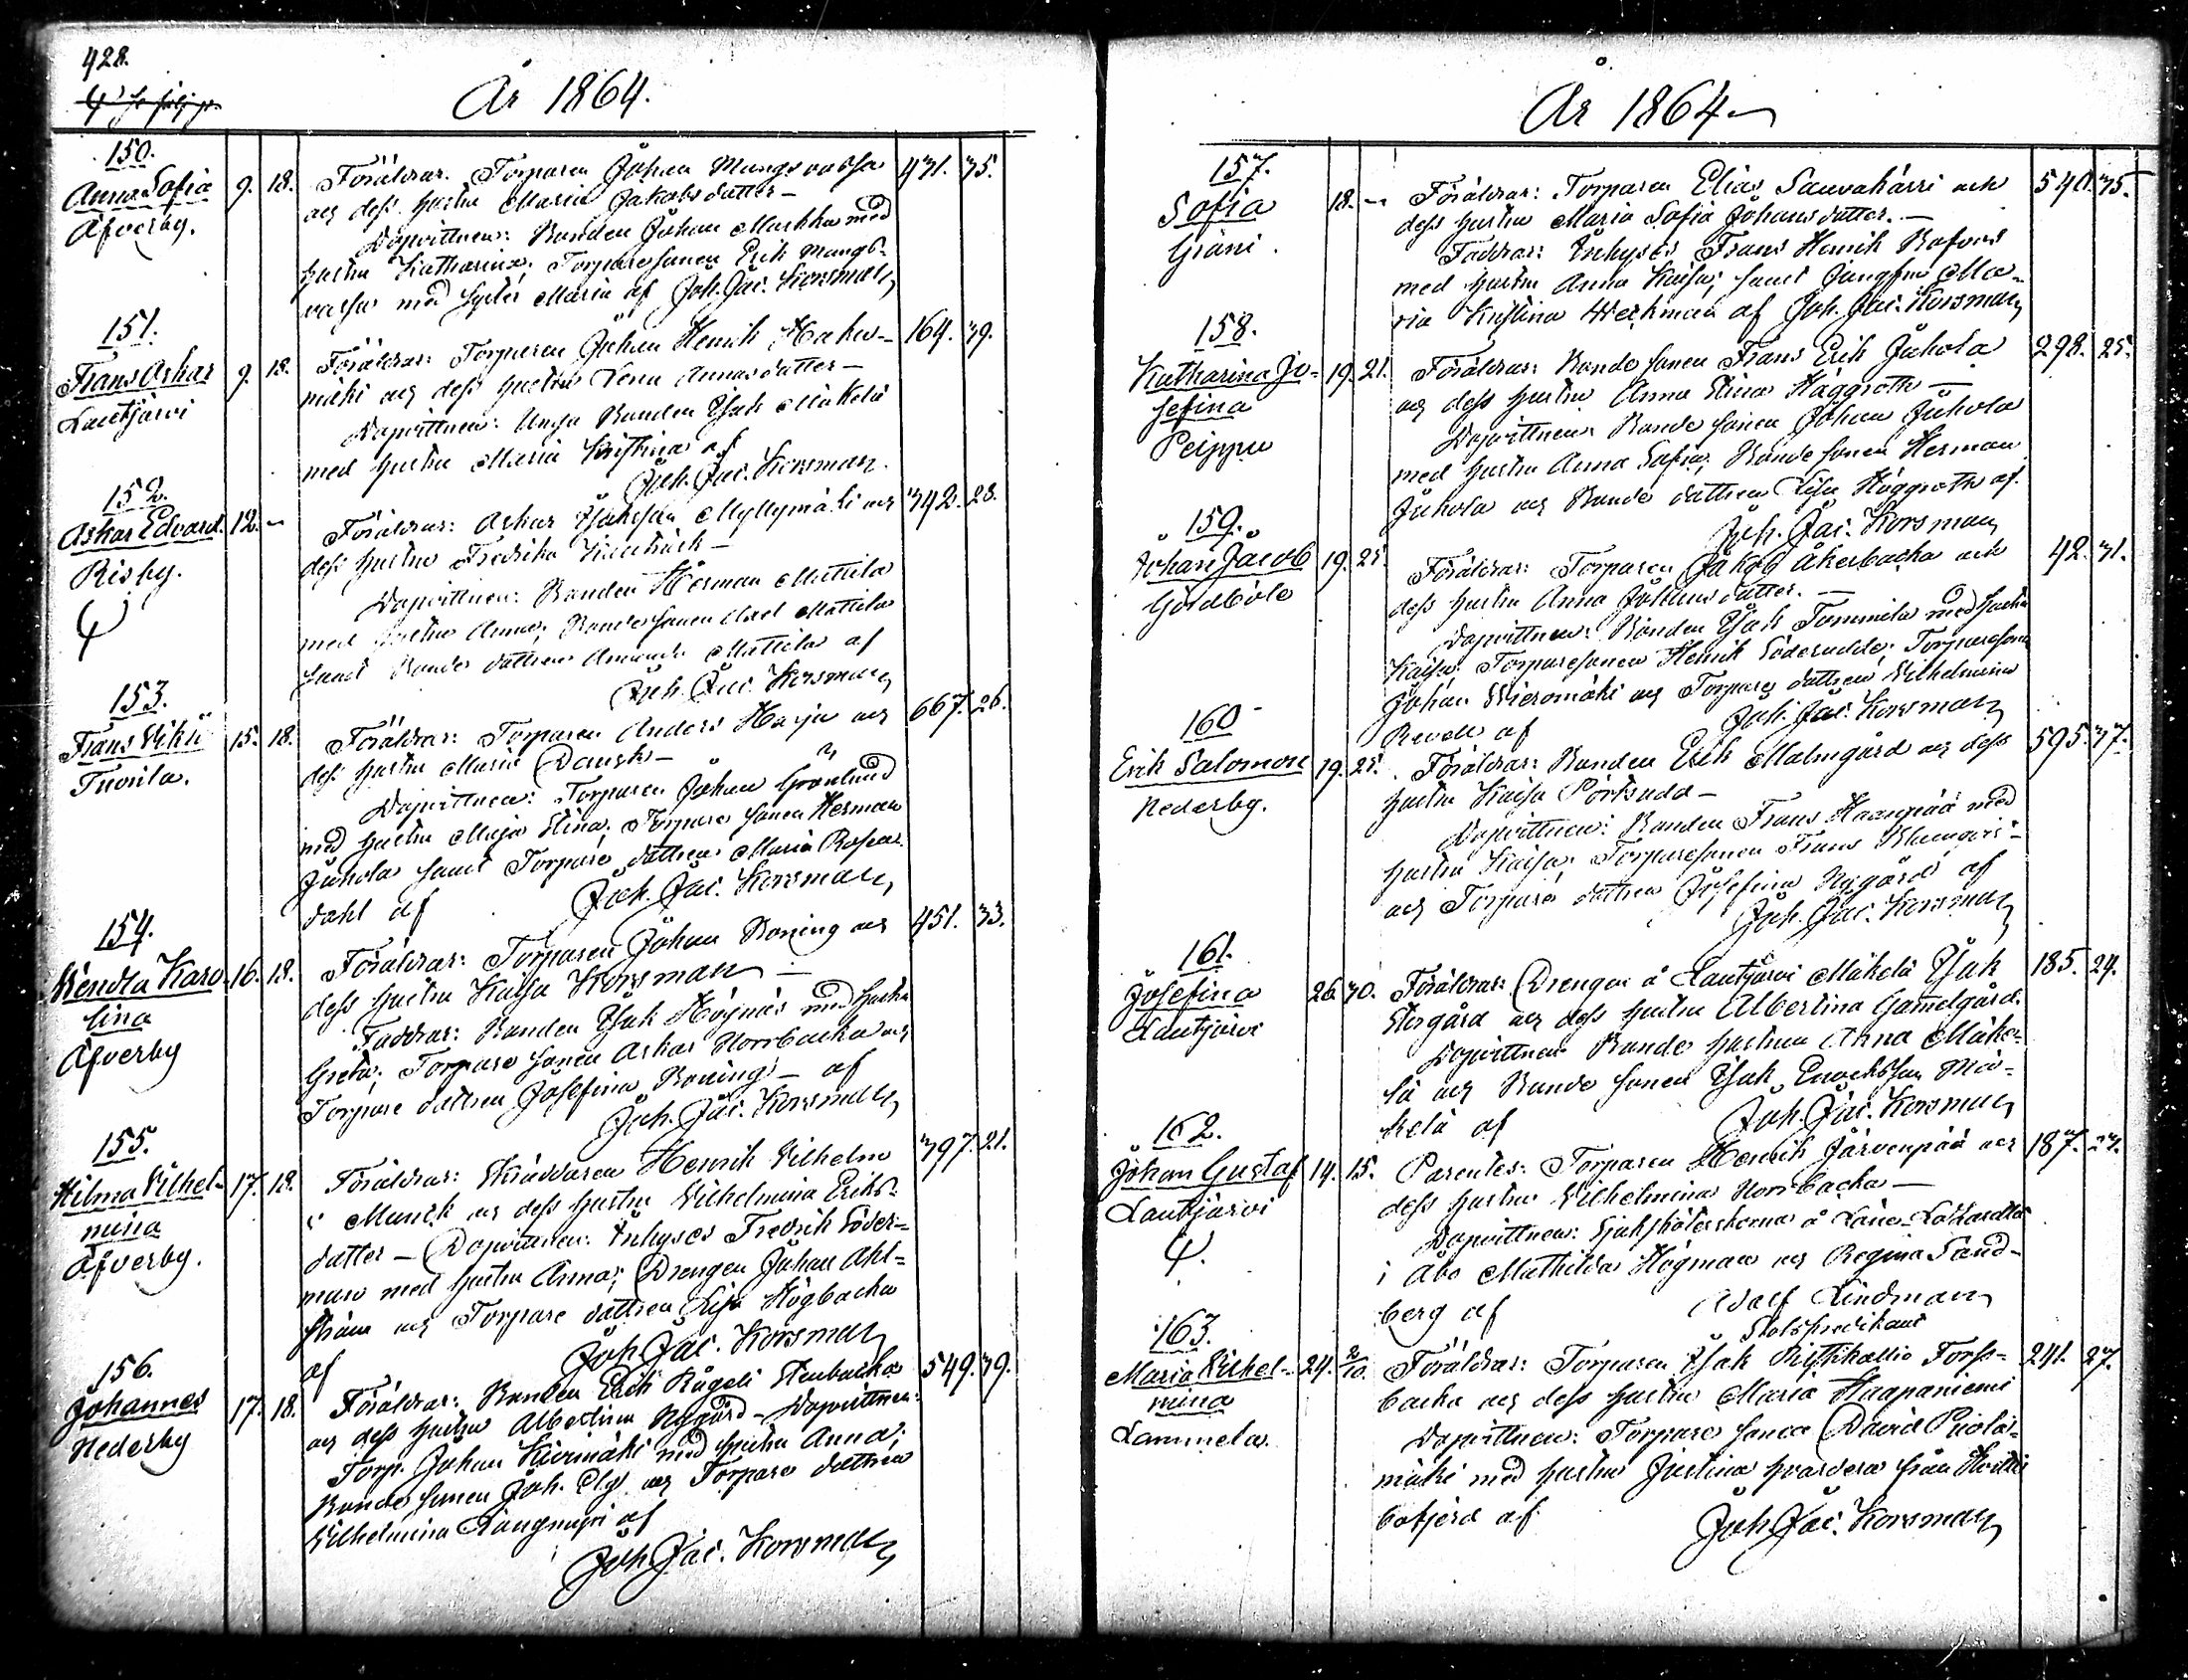 428.
År 1864.
150.
Anna Sofia 9. 18.
Äfverby.
Föräldrar. Torparen Johan Mangs 471. 35.
och dess hustru Maria Jakobsdotter –
Dopvittnen: Bonden Johan Markku med
hustru Katharina; Torparesonen Erik Mangs-
med Syster Maria af Joh. Jac. Korsman
151.
Frans Oskar 9. 18.
Lautjärvi
Föräldrar: Torparen Johan Henrik Hako- 164. 39.
mäki och dess hustru Lena Annasdotter –
Dopvittnen: Unga Bonden Isak Mäkelä
med hustru Maria Kristina af
Joh. Jac. Korsman.
152.
Oskar Edvard. 12. –
Risby.
Föräldrar: Oskar Isaksson Myllymäki och 342. 28.
dess hustru Fredrika
Dopvittnen: Bonden Herman Mattila
med hustru Anna; Bondesonen Axel Mattila
samt Bonde dottren Amanda Mattila af
Joh. Jac. Korsman
153.
Frans Vikt: 15. 18.
Tuorila.
Föräldrar: Torparen Anders Harju och 667. 26.
dess hustru Maria Dansk –
Dopvittnen: Torparen Johan Grönlund
med hustru Maja Stina; Torpare sonen Herman
Juhola samt Torpare dottren Maria Rosen-
dahl af Joh. Jac. Korsman
154.
Wendla Karo- 16. 18.
lina
Äfverby
Föräldrar: Torparen Johan Boning och 451. 33.
dess hustru Kaisa Korsman –
Faddrar: Bonden Isak Högnäs med hustru
Greta; Torpare sonen Oskar Norrbacka och
Torpare dottren Josefina Boning – af
Joh. Jac. Korsman
155.
Hilma Vilhel- 17. 18.
mina
Äfverby.
Föräldrar: Skräddaren Henrik Vilhelm 397. 21.
Munck och dess hustru Vilhelmina Eriks-
dotter – Dopvittnen: Inhyses Fredrik Söder-
man med hustru Anna; Drengen Johan Ahl-
ström och Torpare dottren Lisa Högbacka
af Joh. Jac. Korsman
156.
Johannes 17. 18.
Nederby
Föräldrar: Bonden Erik Stenbacka 549. 39.
och dess hustru Albertina Nygård – Dopvittnen:
Torp. Johan Kivimäki med hustru Anna;
Bonde sonen Joh. och Torpare dottren
Vilhelmina af
Joh. Jac. Korsman
År 1864
157.
Sofia 18. –
Giäni.
Föräldrar: Torparen Elias Sauvahärri och 540. 35.
dess hustru Maria Sofia Johansdotter. –
Faddrar: Inhyses Frans Henrik Rafors
med hustru Anna Kaisa; samt Jungfru Ma-
ria Kristina Weckman af Joh. Jac. Korsman
158.
Katharina Jo- 19. 21.
sefina
Peippu
Föräldrar: Bonde sonen Frans Erik Juhola 298. 25.
och dess hustru Anna Stina Häggroth –
Dopvittnen: Bonde sonen Johan Juhola
med hustru Anna Sofia; Bonde sonen Herman
Juhola och Bonde dottren Lisa Häggroth af
Joh. Jac. Korsman
159.
Johan Jacob 19. 25.
Gårdböle
Föräldrar: Torparen Jakob Åkerbacka och 42. 31.
dess hustru Anna Johansdotter. –
Dopvittnen: Bonden Isak Tommila med hustru
Kaisa; Torparesonen Henrik Söderudde; Torparesonen
Johan Wieromäki och Torpare dottren Vilhelmina
Revell af Joh. Jac. Korsman
160
Erik Salomon 19. 25.
Nederby.
Föräldrar: Bonden Erik Malmgård och dess 595. 37.
hustru Kaisa Pörtsudd –
Dopvittnen: Bonden Frans Haanpää med
hustru Kaisa; Torparesonen Frans
och Torpare dottren Josefina Nygård af
Joh. Jac. Korsman
161.
Josefina 26. 30.
Lautjärvi
Föräldrar: Drengen å Lautjärvi Mäkelä Isak 185. 24.
Storgård och dess hustru Albertina Gamelgård.
Dopvittnen Bonde hustrun Anna Mäke-
lä och Bonde sonen Isak Enocksson Mä-
kelä af Joh. Jac. Korsman
162.
Johan Gustaf 14. 15.
Lautjärvi
Parentes: Torparen Henrik Järvenpää och 187.
dess hustru Vilhelmina Norrbacka –
Dopvittnen: Sjuksköterskorna å Läns-Lazarettet
i Åbo Mathilda Högman och Regina Sand-
berg af Adolf Lindman
Slottspredikant
163.
Maria Vilhel- 24. 2/10.
mina
Lammela.
Föräldrar: Torparen Isak Ristikallio Forss- 241. 27.
backa och dess hustru Maria Haapaniemi
Dopvittnen: Torpare sonen David
mäki med hustru Justina från
bofjerd af Joh. Jac. Korsman